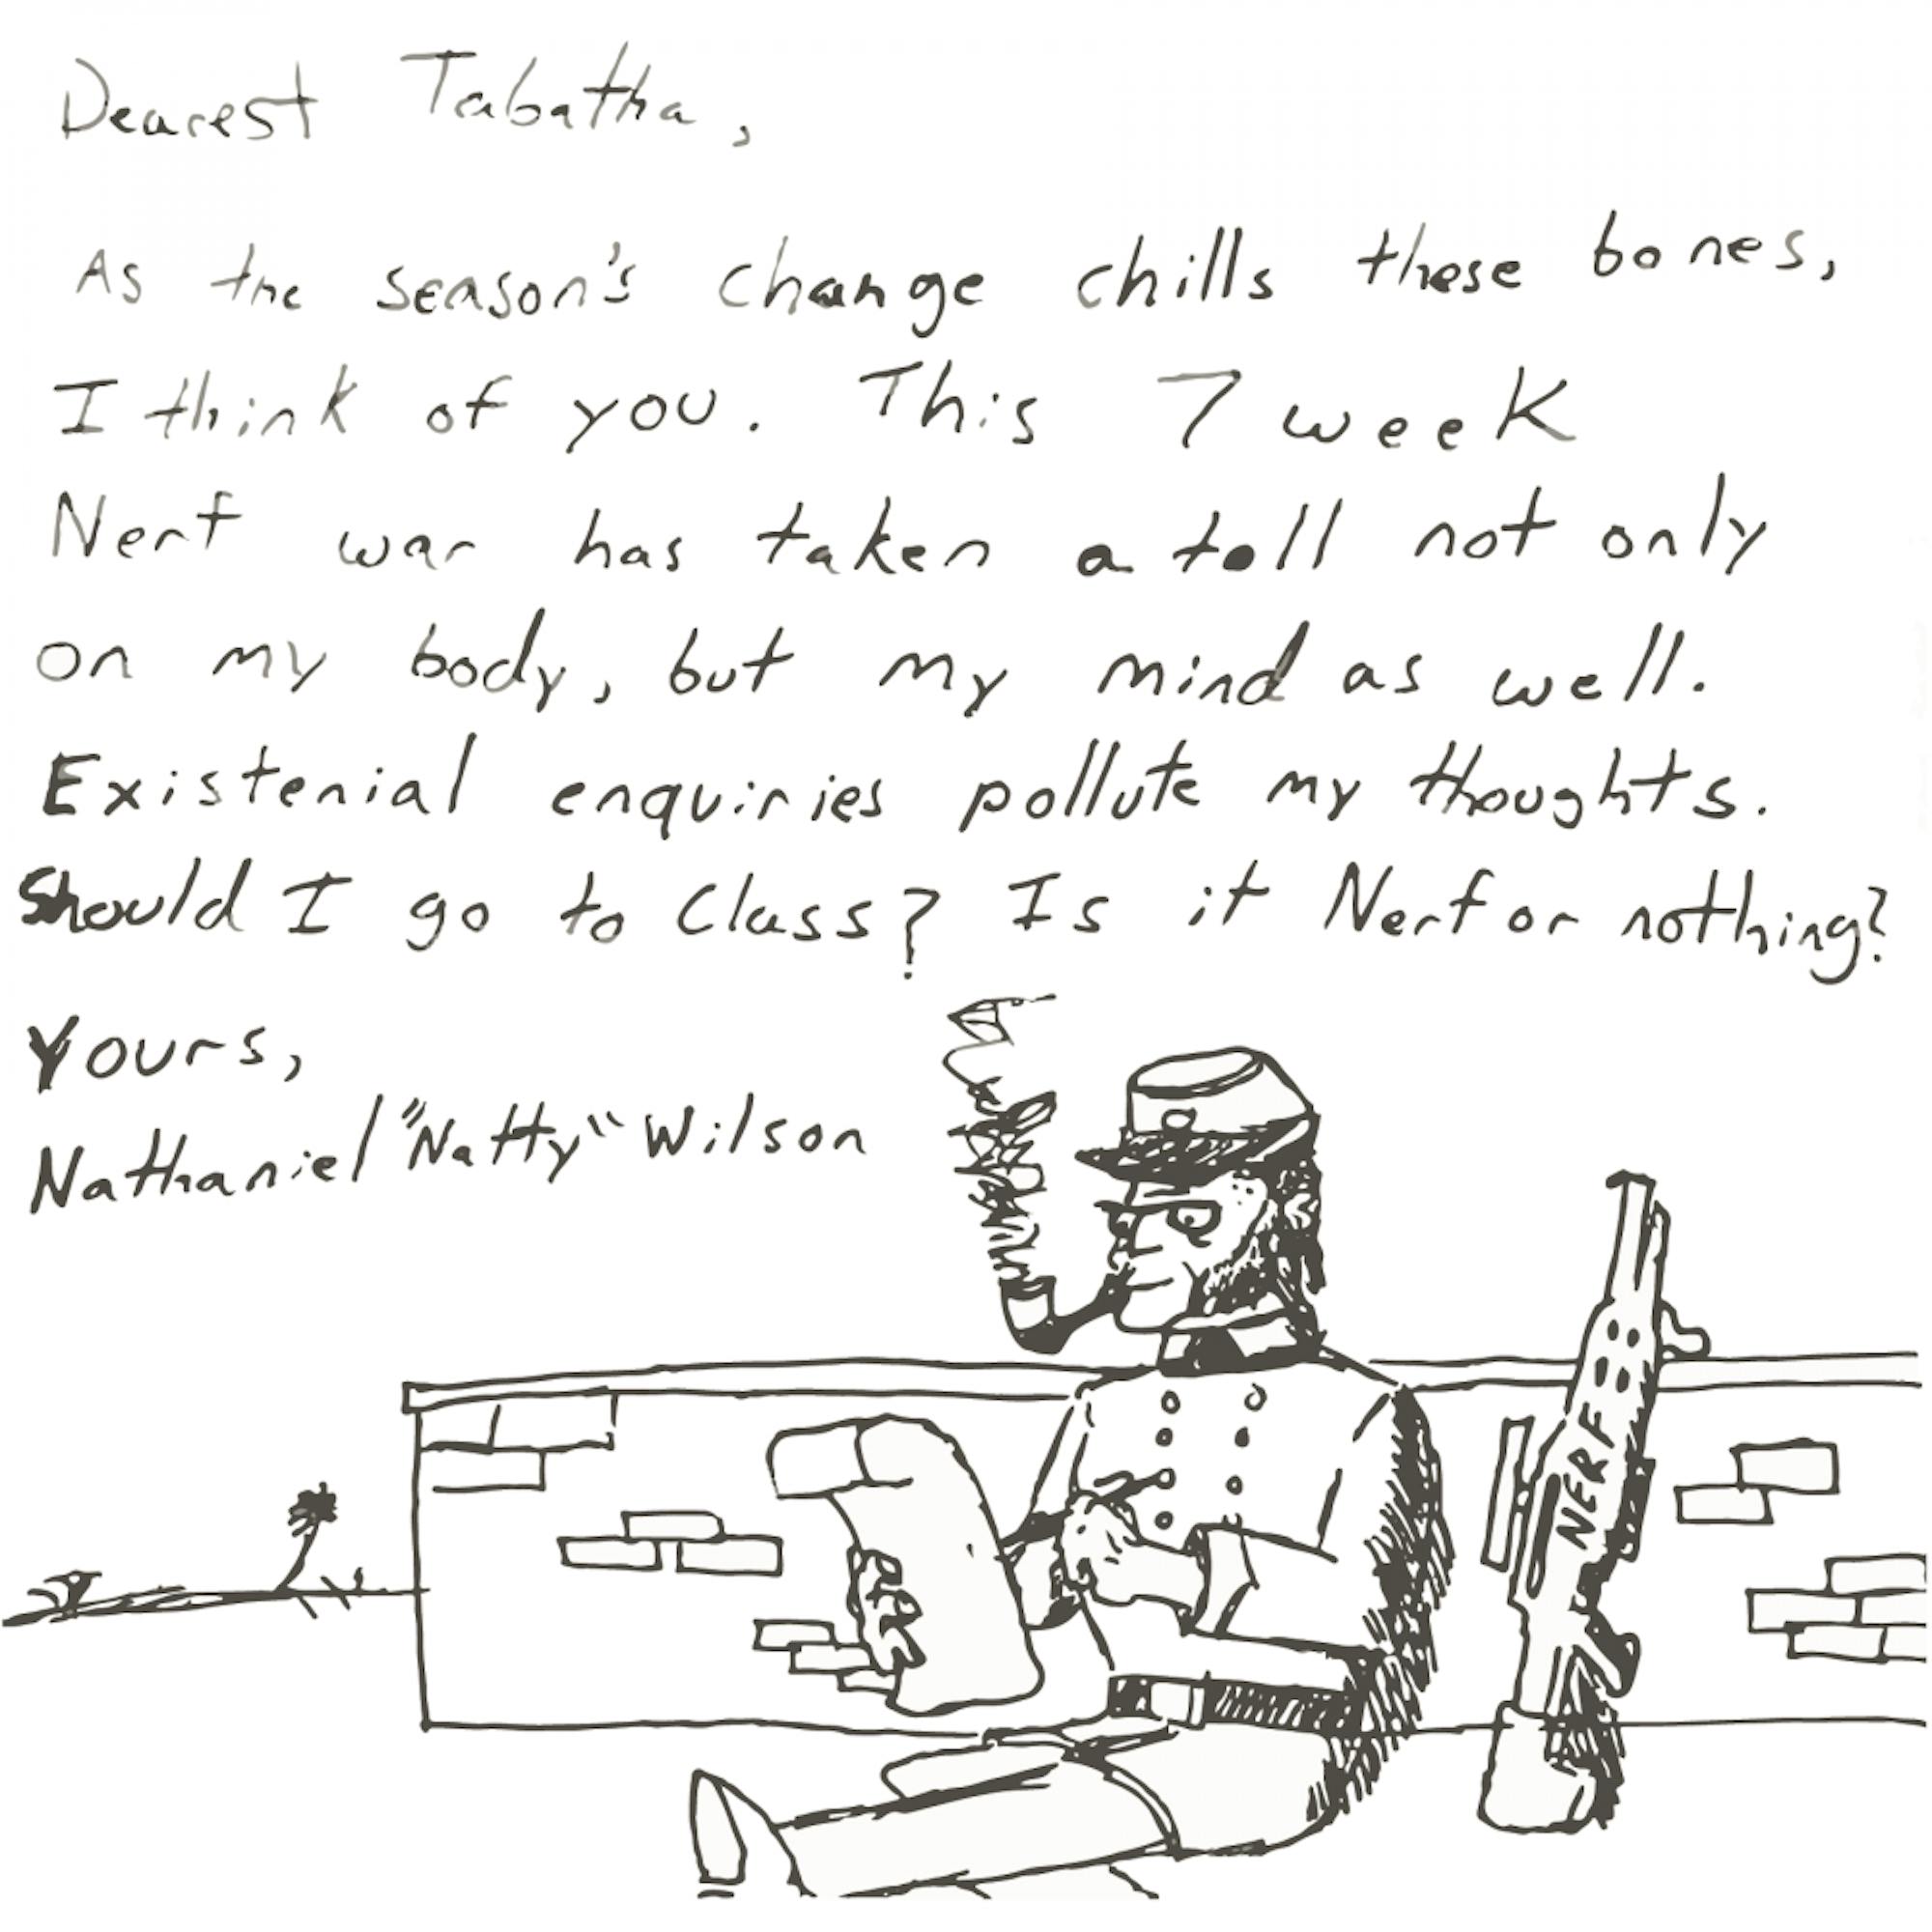 Dearest Tabatha,
As the season's change chills these bones,
I think of you. This 7 week
Nerf war has taken a toll not only
on my body, but my mind as well.
Existenial enquiries pollute my thoughts.
Should I go to Class? Is it Nerf or nothing?
Yours,
Nathaniel "Natty" Wilson
NERF